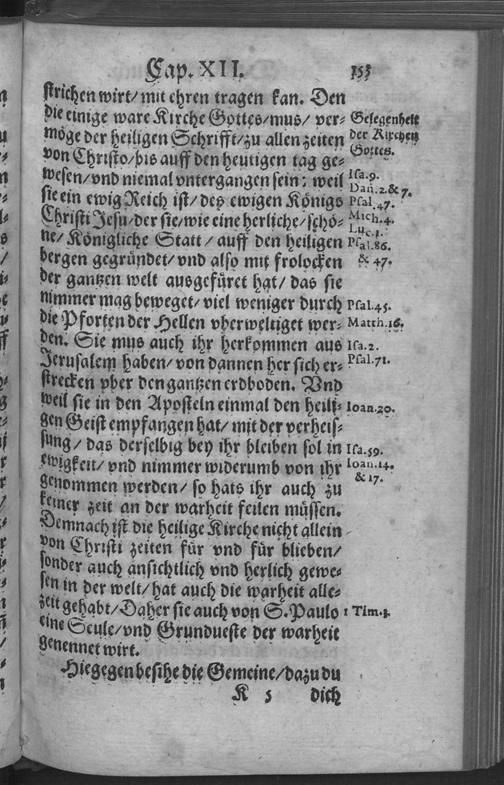 Cap. XII. 153
strichen wirt/ mit ehren tragen kan. Den
die einige ware Kirche Gottes/mus/ ver- Gelegenheit
möge der heiligen Schrifft/zu allen zeiten der Kirchen
von Christo/bis auff den heutigen tag ge- Gottes.
wesen/vnd niemal vntergangen sein: weil Isa.9.
sie ein ewig Reich ist/ des ewigen Königs Dan.2.& 7.
Psal.47.
Christi Jesu/der sie/wie eine herliche/schö- Mich.4.
Luc.1.
ne/ Königliche Statt/ auff den heiligen Psal.86.
bergen gegründet/vnd also mit frolocken & 47.
der gantzen welt ausgefüret hat/ das sie
nimmer mag beweget/ viel weniger durch Psal.45.
die Pforten der Hellen vberweltiget wer- Matth.16.
den. Sie mus auch ihr herkommen aus Isa.2.
Jerusalem haben/ von dannen her sich er- Psal.71.
strecken vber den gantzen erdboden. Vnd
weil sie in den Aposteln einmal den heili- Ioan.20.
gen Geist empfangen hat/ mit der verheis-
sung/ das derselbig bey ihr bleiben sol in Isa.59.
ewigkeit/ vnd nimmer widerumb von ihr Ioan.14.
genommen werden/ so hats ihr auch zu & 17.
keiner zeit an der warheit feilen müssen.
Demnach ist die heilige Kirche nicht allein
von Christi zeiten für vnd für blieben/
sonder auch ansichtlich vnd herlich gewe-
sen in der welt/ hat auch die warheit alle-
zeit gehabt/ Daher sie auch von S. Paulo 1 Tim.3.
eine Seule/vnd Grundueste der warheit
genennet wirt.
Hiegegen besihe die Gemeine/dazu du
K 5 dich